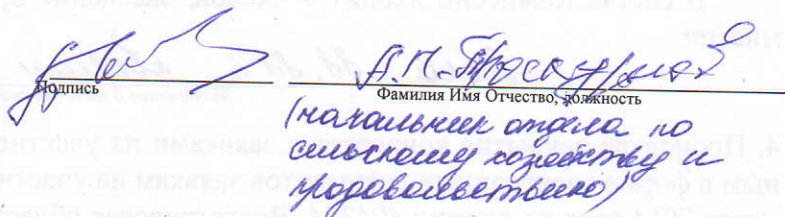 А.П. Проскурина
Подпись
Фамилия Имя Отчество, должность
(начальник отдела по
сельскому хозяйству и
продовольствию)